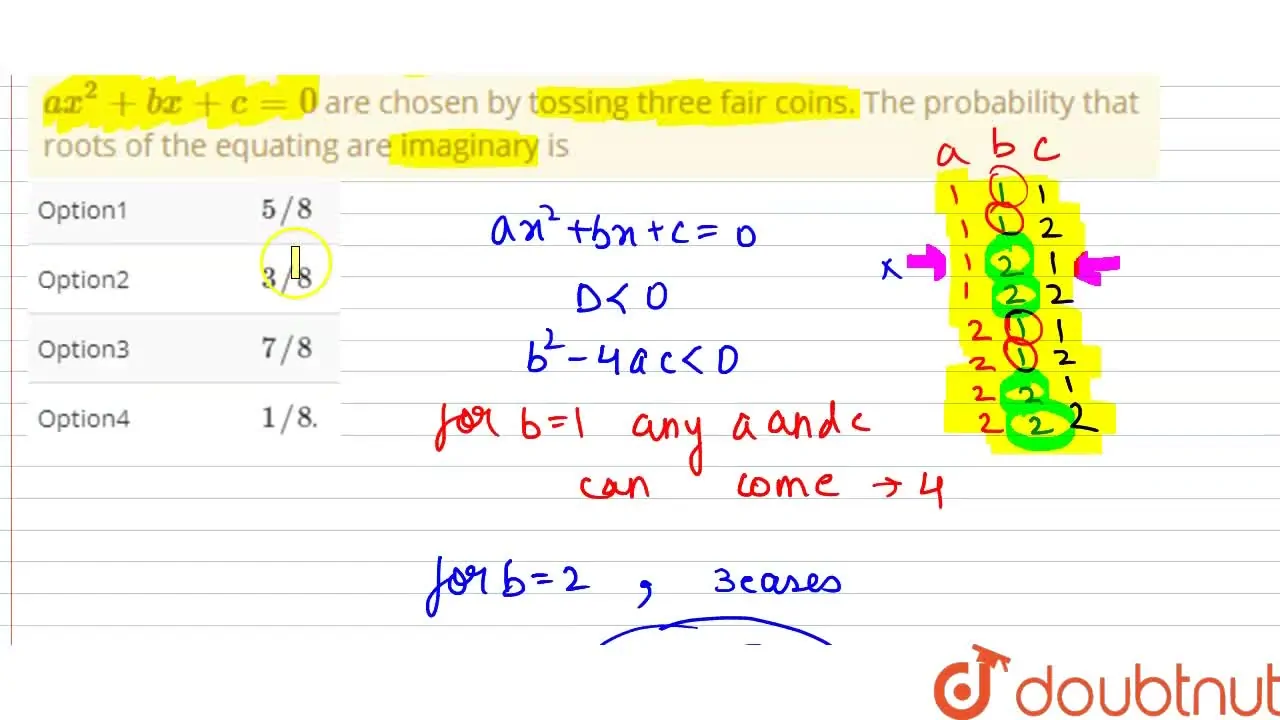 ax² + bx + c = 0 are chosen by tossing three fair coins. The probability that
roots of the equating are imaginary is
Option1 5/8
Option2 3/8
Option3 7/8
Option4 1/8.
ax²+bx+c= 0
D< 0
b²-4ac<0
for b=1 any a and c
can come → 4
for b=2 , 3 cases
a b c
1 1 1
1 1 2
x 1 2 1
1 2 2
2 1 1
2 1 2
2 2 1
2 2 2
doubtnut